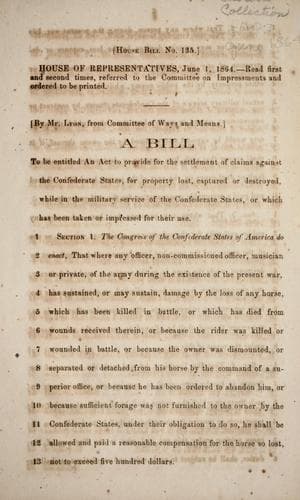 Collection
[House Bill No. 135.]
HOUSE OF REPRESENTATIVES, June 1, 1864.—Read first
and second times, referred to the Committee on Impressments and
ordered to be printed.
[By Mr. Lyon, from Committee of Ways and Means.]
A BILL
To be entitled An Act to provide for the settlement of claims against
the Confederate States, for property lost, captured or destroyed,
while in the military service of the Confederate States, or which
has been taken or impressed for their use.
1 Section 1. The Congress of the Confederate States of America do
2 enact, That where any officer, non-commissioned officer, musician
3 or private, of the army during the existence of the present war,
4 has sustained, or may sustain, damage by the loss of any horse,
5 which has been killed in battle, or which has died from
6 wounds received therein, or because the rider was killed or
7 wounded in battle, or because the owner was dismounted, or
8 separated or detached from his horse by the command of a su-
9 perior office, or because he has been ordered to abandon him, or
10 because sufficient forage was not furnished to the owner by the
11 Confederate States, under their obligation to do so, he shall be
12 allowed and paid a reasonable compensation for the horse so lost,
13 not to exceed five hundred dollars.